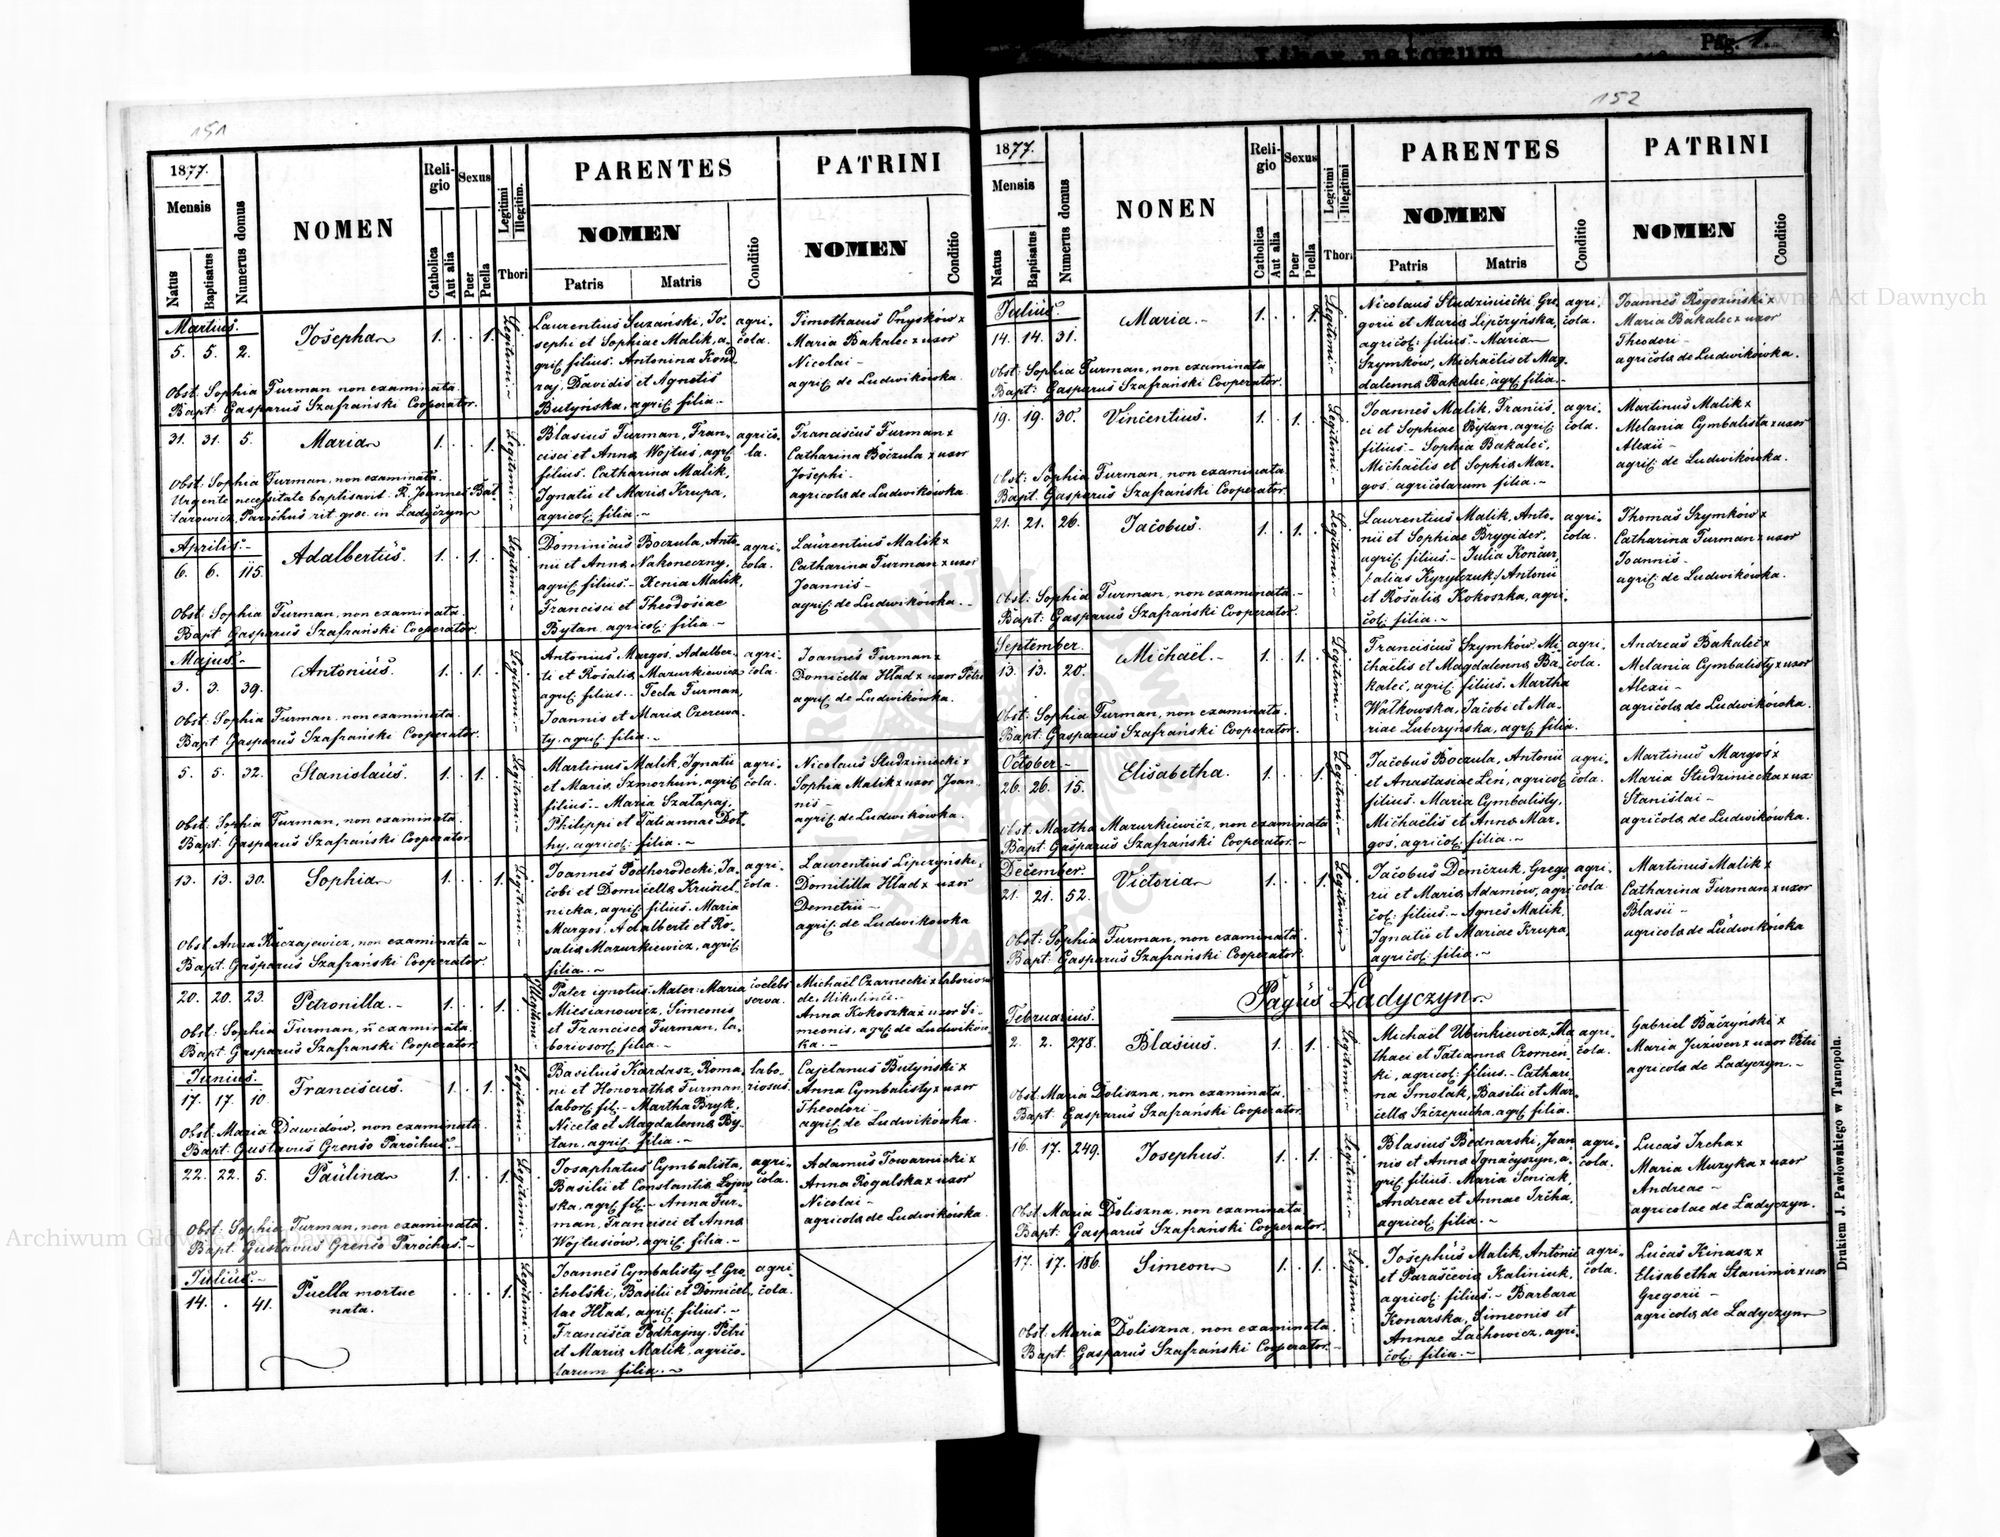 Liber natorum
Pag. 1.
151
1877.
Mensis
Natus
Baptisatus
Numerus domus
NOMEN
Religio
Catholica
Aut alia
Sexus
Puer
Puella
Legitimi
Illegitim.
Thori
PARENTES
NOMEN
Patris
Matris
Conditio
PATRINI
NOMEN
Conditio
Martius.
5. 5. 2. Josepha 1. 1. Legitimi
Laurentius Suzański, Jo-
sephi et Sophiae Malik, a-
gric. filius. Antonina Kond
raj, Davidis et Agnetis
Butyńska, agric. filia.
agri-
cola.
Timothaeus Onysków x
Maria Bakalec x uxor
Nicolai -
agric. de Ludwikówka.
Obst: Sophia Furman non examinata.
Bapt: Gasparus Szafrański Cooperator.
31. 31. 5. Maria 1. 1. Legitimi
Blasius Furman, Fran-
cisci et Anna Wojtus, agric.
filius. Catharina Malik,
Ignatii et Maria Krupa,
agricol. filia. -
agrico-
la.
Franciscus Furman x
Catharina Boczula x uxor
Josephi -
agricola de Ludwikówka
Obst. Sophia Furman, non examinata.
Urgente necessitate baptisavit R. Joannes Bał
tarowicz, Parochus rit. graec. in Ladyczyn
Aprilis. -
6. 6. 115. Adalbertus. 1. 1. Legitimi
Dominicus Boczula, Anto-
nii et Anna Nakoneczny,
agric. filius. - Xenia Malik,
Francisci et Theodosiae
Bytan agricol: filia -
agri-
cola.
Laurentius Malik x
Catharina Furman x uxor
Joannis -
agric. de Ludwikówka. -
Obst: Sophia Furman, non examinata.
Bapt Gasparus Szafrański Cooperator.
Majus. -
3. 3. 39. Antonius. 1. 1. Legitimi
Antonius Margos. Adalber-
ti et Rosalia Mazurkiewicz
agric. filius. - Tecla Furman,
Joannis et Maria Czerewa-
ty. agric. filia. -
agri-
cola.
Joannes Furman x
Domicella Hład x uxor Petri
agric. de Ludwikówka.
Obst: Sophia Furman, non examinata.
Bapt Gasparus Szafrański Cooperator.
5. 5. 32. Stanislaus. 1. 1. Legitimi
Martinus Malik, Ignatii
et Maria Szmorhun, agric.
filius. - Maria Szałapaj,
Philippi et Tatiannae Dot-
hy, agricol: filia. -
agri-
cola.
Nicolaus Studziniecki x
Sophia Malik x uxor Joan
nis -
agric. de Ludwikówka.
Obst: Sophia Furman, non examinata.
Bapt. Gasparus Szafrański Cooperator.
13. 13. 30. Sophia 1. 1. Legitimi
Joannes Podhorodecki, Ja-
cobi et Domicella Kruszel-
nicka, agric. filius. Maria
Margos. Adalberti et Ro-
salia Mazurkiewicz, agric.
filia. -
agri-
cola.
Laurentius Lipczyński x
Domitilla Hład x uxor
Demetrii -
agric. de Ludwikówka
Obst: Anna Ruczajewicz, non examinata -
Bapt: Gasparus Szafrański Cooperator.
20. 20. 23. Petronilla. - 1. 1. Illegitimi
Pater ignotus. Mater: Maria
Miesianowicz, Simeonis
et Francisca Furman, la-
boriosor. filia. -
coelebs
serva.
Michaël Czarnecki x laborios
de Mikulińce. -
Anna Kokoszka x uxor Si-
meonis, agric. de Ludwików-
ka. -
Obst: Sophia Furman, ñ examinata.
Bapt: Gasparus Szafrański Cooperator.
Junius.
17. 17. 10. Franciscus. 1. 1. Legitimi
Basilius Kardasz, Roma-
ni et Honorata Furman,
labor. fil. - Martha Bryk,
Niceta et Magdalenna By-
tan, agric. filia. -
labo-
riosus.
Cajetanus Butyński x
Anna Cymbalisty x uxor
Theodori -
agric. de Ludwikówka.
Obst: Maria Dawidów, non examinata.
Bapt: Gustavus Grenso Parochus. -
22. 22. 5. Paulina 1. 1. Legitimi
Josaphatus Cymbalista,
Basilii et Constantia Łojow-
ska, agric. fil. - Anna Fur-
man, Francisci et Anna
Wojtusiów, agric. filia. -
agri-
cola.
Adamus Towarnicki x
Anna Rogalska x uxor
Nicolai -
agricola de Ludwikówka.
Obst. Sophia Furman, non examinata.
Bapt. Gustavus Grenso Parochus. -
Julius. -
14. . 41. Puella mortue
nata. 1. Legitimi
Joannes Cymbalisty vl Gro-
cholski, Basilii et Domicel-
lae Hład, agric. filius. -
Francisca Podhajny. Petri
et Maria Malik, agrico-
larum filia. -
agri-
cola.
152
1877.
Mensis
Natus
Baptisatus
Numerus domus
NONEN
Religio
Catholica
Aut alia
Sexus
Puer
Puella
Legitimi
Illegitimi
Thori
PARENTES
NOMEN
Patris
Matris
Conditio
PATRINI
NOMEN
Conditio
Julius.
14. 14. 31. Maria. - 1. 1. Legitimi
Nicolaus Studziniecki, Gre-
gorii et Maria Lipczyńska,
agricol: filius. - Maria
Szymków, Michaëlis et Mag-
dalenna Bakalec, agric. filia. -
agri-
cola.
Joannes Rogoziński x
Maria Bakalec x uxor
Theodori -
agricola de Ludwikówka.
Obst: Sophia Furman, non examinata
Bapt: Gasparus Szafrański Cooperator.
19. 19. 30. Vincentius. 1. 1. Legitimi
Joannes Malik, Francis-
ci et Sophiae Bytan, agric.
filius. - Sophia Bakalec,
Michaëlis et Sophia Mar-
gos. agricolarum filia. -
agri-
cola.
Martinus Malik x
Melania Cymbalista x uxor
Alexii -
agric. de Ludwikówka.
Obst: Sophia Furman, non examinata
Bapt. Gasparus Szafrański Cooperator
21. 21. 26. Jacobus. 1. 1. Legitimi
Laurentius Malik, Anto-
nii et Sophiae Brygider,
agric. filius. - Julia Končur
/:alias Kyrylczuk:/ Antonii
et Rosalia Kokoszka, agri-
col. filia. -
agri-
cola.
Thomas Szymków x
Catharina Furman x uxor
Joannis -
agric. de Ludwikówka.
Obst: Sophia Furman, non examinata. -
Bapt: Gasparus Szafrański Cooperator.
September.
13. 13. 20. Michaël. - 1. 1. Legitimi
Franciscus Szymków. Mi-
chaëlis et Magdalenna Ba-
kalec, agric. filius. Martha
Wałkowska, Jacobi et Ma-
riae Lubczyńska, agric. filia.
agri-
cola.
Andreas Bakalec x
Melania Cymbalisty x uxor
Alexii -
agricola de Ludwikówka.
Obst: Sophia Furman, non examinata.
Bapt: Gasparus Szafrański Cooperator.
October. -
26. 26. 15. Elisabetha. 1. 1. Legitimi
Jacobus Boczula, Antonii
et Anastasiae Leń, agricol.
filius. Maria Cymbalisty,
Michaëlis et Anna Mar-
gos, agricol. filia. -
agri-
cola.
Martinus Margos x
Maria Studziniecka x ux
Stanislai -
agricola de Ludwikówka.
Obst: Martha Mazurkiewicz, non examinata
Bapt: Gasparus Szafrański Cooperator. -
December.
21. 21. 52. Victoria 1. 1. Legitimi
Jacobus Demczuk, Grego-
rii et Maria Adamów, agri-
col: filius. - Agnes Malik,
Ignatii et Mariae Krupa,
agricol: filia. -
agri-
cola.
Martinus Malik x
Catharina Furman x uxor
Blasii -
agricola de Ludwikówka
Obst: Sophia Furman, non examinata.
Bapt: Gasparus Szafrański Cooperator.
Pagus Ladyczyn
Februarius.
2. 2. 278. Blasius. 1. 1. Legitimi
Michaël Ubinkiewicz, Ma-
thaei et Tatianna Czornen-
ki, agricol: filius. - Cathari-
na Smolak, Basilii et Mar-
cella Szczepucha, agric. filia.
agri-
cola.
Gabriel Baczyński x
Maria Juzwen x uxor Petri
agricola de Ladyczyn. -
Obst: Maria Doliszna, non examinata.
Bapt: Gasparus Szafrański Cooperator.
16. 17. 249. Josephus. 1. 1. Legitimi
Blasius Bednarski, Joan-
nis et Anna Ignaczyszyn, a-
gric. filius. Maria Seniak,
Andreae et Annae Ircha,
agricol. filia. -
agri-
cola.
Lucas Ircha x
Maria Muzyka x uxor
Andreae -
agricolae de Ladyczyn.
Obst. Maria Doliszna, non examinata.
Bapt: Gasparus Szafrański Cooperator.
17. 17. 186. Simeon 1. 1. Legitimi
Josephus Malik, Antonii
et Parascevia Kaliniuk,
agricol: filius. - Barbara
Konarska, Simeonis et
Annae Lachowicz, agri-
col: filia. -
agri-
cola.
Lucas Kinasz x
Elisabetha Stanimir x uxor
Gregorii -
agricola de Ladyczyn
Obst: Maria Doliszna, non examinata.
Bapt: Gasparus Szafrański Cooperator. -
Drukiem J. Pawłowskiego w Tarnopolu.
Archiwum Główne Akt Dawnych
Archiwum Główne Akt Dawnych